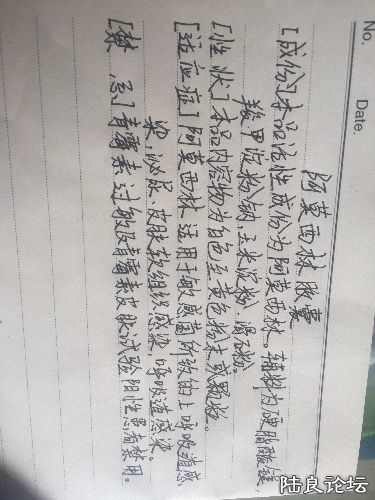 No.
Date.
阿莫西林胶囊
[成份]本品活性成份为阿莫西林。辅料为硬脂酸镁
羧甲淀粉钠,玉米淀粉、滑石粉。
[性状]本品内容物为白色至黄色粉末或颗粒。
[适应症]阿莫西林适用于敏感菌所致的上呼吸道感
染,泌尿、皮肤软组织感染,呼吸道感染。
[禁忌]青霉素过敏及青霉素皮肤试验阳性患者禁用。
陆良论坛